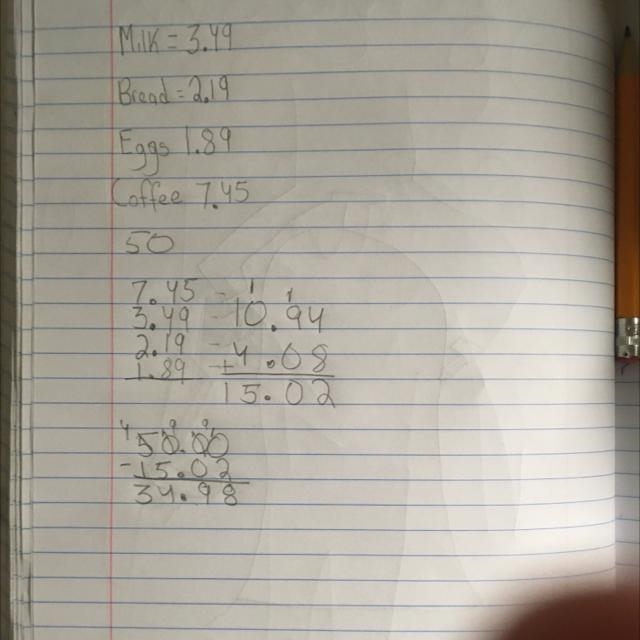 Milk = 3.49
Bread = 2.19
Eggs 1.89
Coffee 7.45
50
7.45 - 1 1
3.49 10.94
2.19 -
1.89 + 4.08
15.02
4 9 9
50.00
- 15.02
34.98